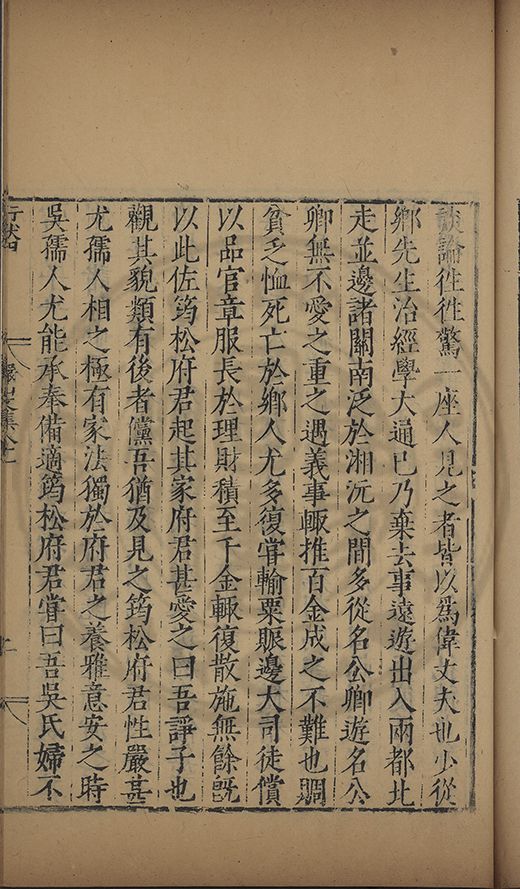 談論徃徃驚一座人見之者皆以爲偉丈夫也少從
鄉先生治經學大通已乃棄去事遠遊出入兩都北
走並邊諸關南泛於湘沅之間多從名公卿遊名公
卿無不愛之重之遇義事輙推百金成之不難也賙
貧乏恤死亡於鄉人尤多復甞輸粟賑邊大司徒償
以品官章服長於理財積至千金輙復散施無餘旣
以此佐筠松府君起其家府君甚愛之曰吾諍子也
觀其貌類有後者黨吾猶及見之筠松府君性嚴甚
尤孺人相之極有家法獨於府君之養雅意安之時
吳孺人尤能承奉備適筠松府君甞曰吾吳氏婦不
行狀